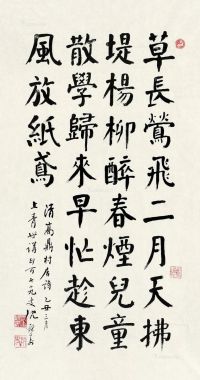 草長鶯飛二月天拂
堤楊柳醉春煙兒童
散學歸來早忙趁東
風放紙鳶
清高鼎村居詩 三月